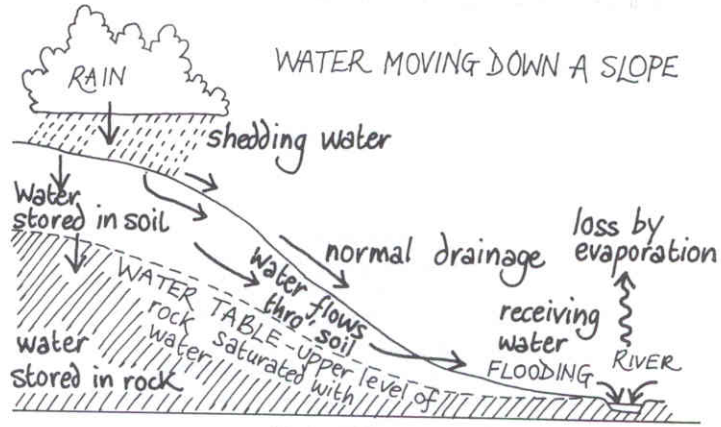 WATER MOVING DOWN A SLOPE
RAIN
shedding water
Water
stored in soil
normal drainage
loss by
evaporation
Water flows
thro' soil
WATER TABLE-upper level of
rock saturated with
water
receiving
water
FLOODING
RIVER
water
stored in rock